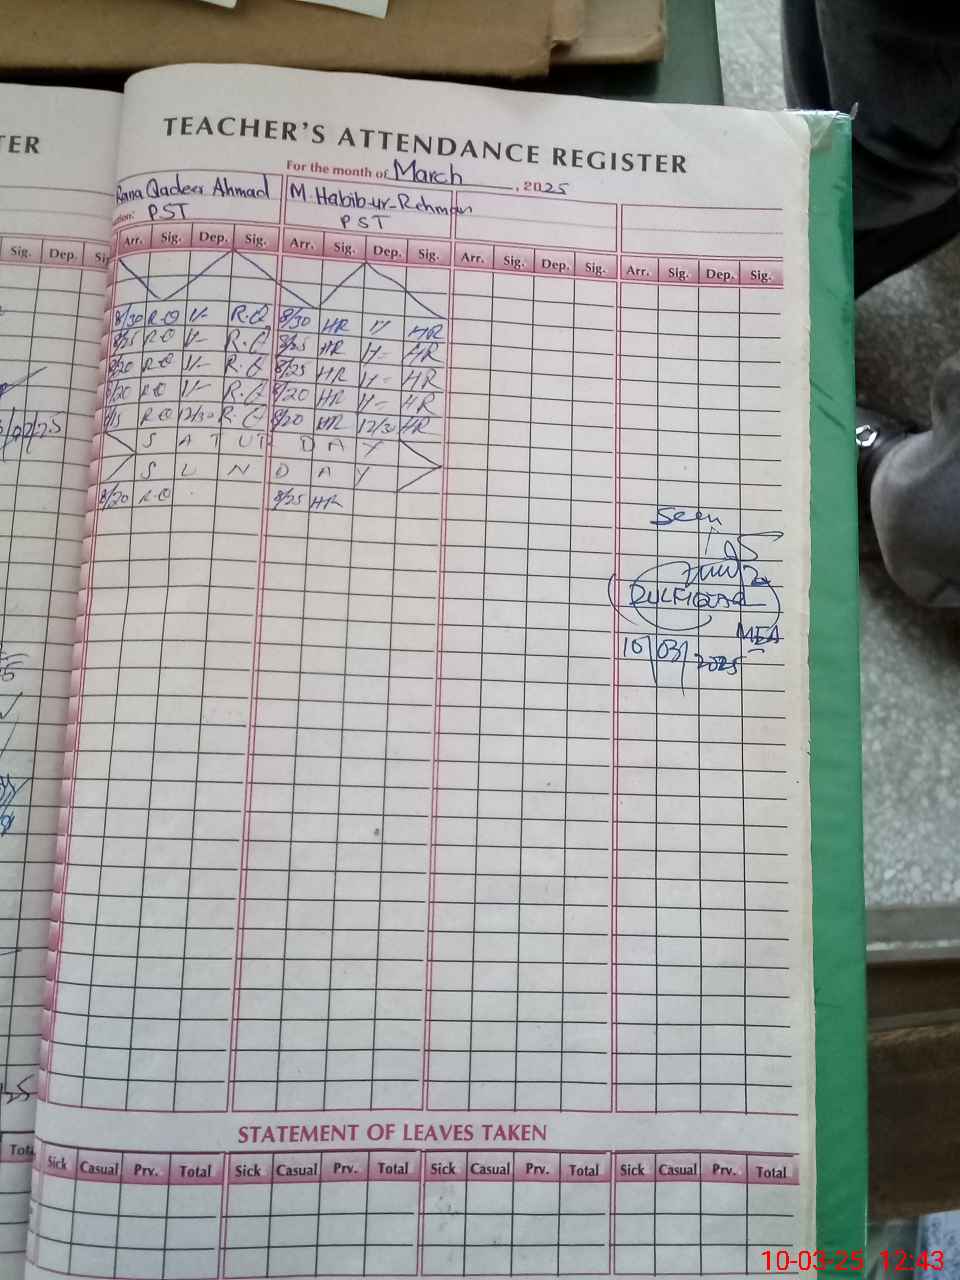 TER
TEACHER'S ATTENDANCE REGISTER
For the month of March, 2025
Rana Qadeer Ahmad M. Habib-ur-Rehman
PST PST
Sig. Dep. Sig. Arr. Sig. Dep. Sig. Arr. Sig. Dep. Sig. Arr. Sig. Dep. Sig. Arr. Sig. Dep. Sig.
8/30 R.Q 1/- R.Q 8/30 HR 1/- HR
8/25 R.Q 1/- R.Q 8/25 HR 1/- HR
8/20 R.Q 1/- R.Q 8/25 HR 1/- HR
8/20 R.Q 1/- R.Q 8/20 HR 1/- HR
8/15 R.Q 12/30 R.Q 8/20 HR 12/30 HR
S A T U R D A Y
S U N D A Y
8/20 R.Q 8/25 HR
Seen
ZULFIQAR
MEA
10/03/2025
STATEMENT OF LEAVES TAKEN
Total Sick Casual Prv. Total Sick Casual Prv. Total Sick Casual Prv. Total Sick Casual Prv. Total
10-03-25 12:43